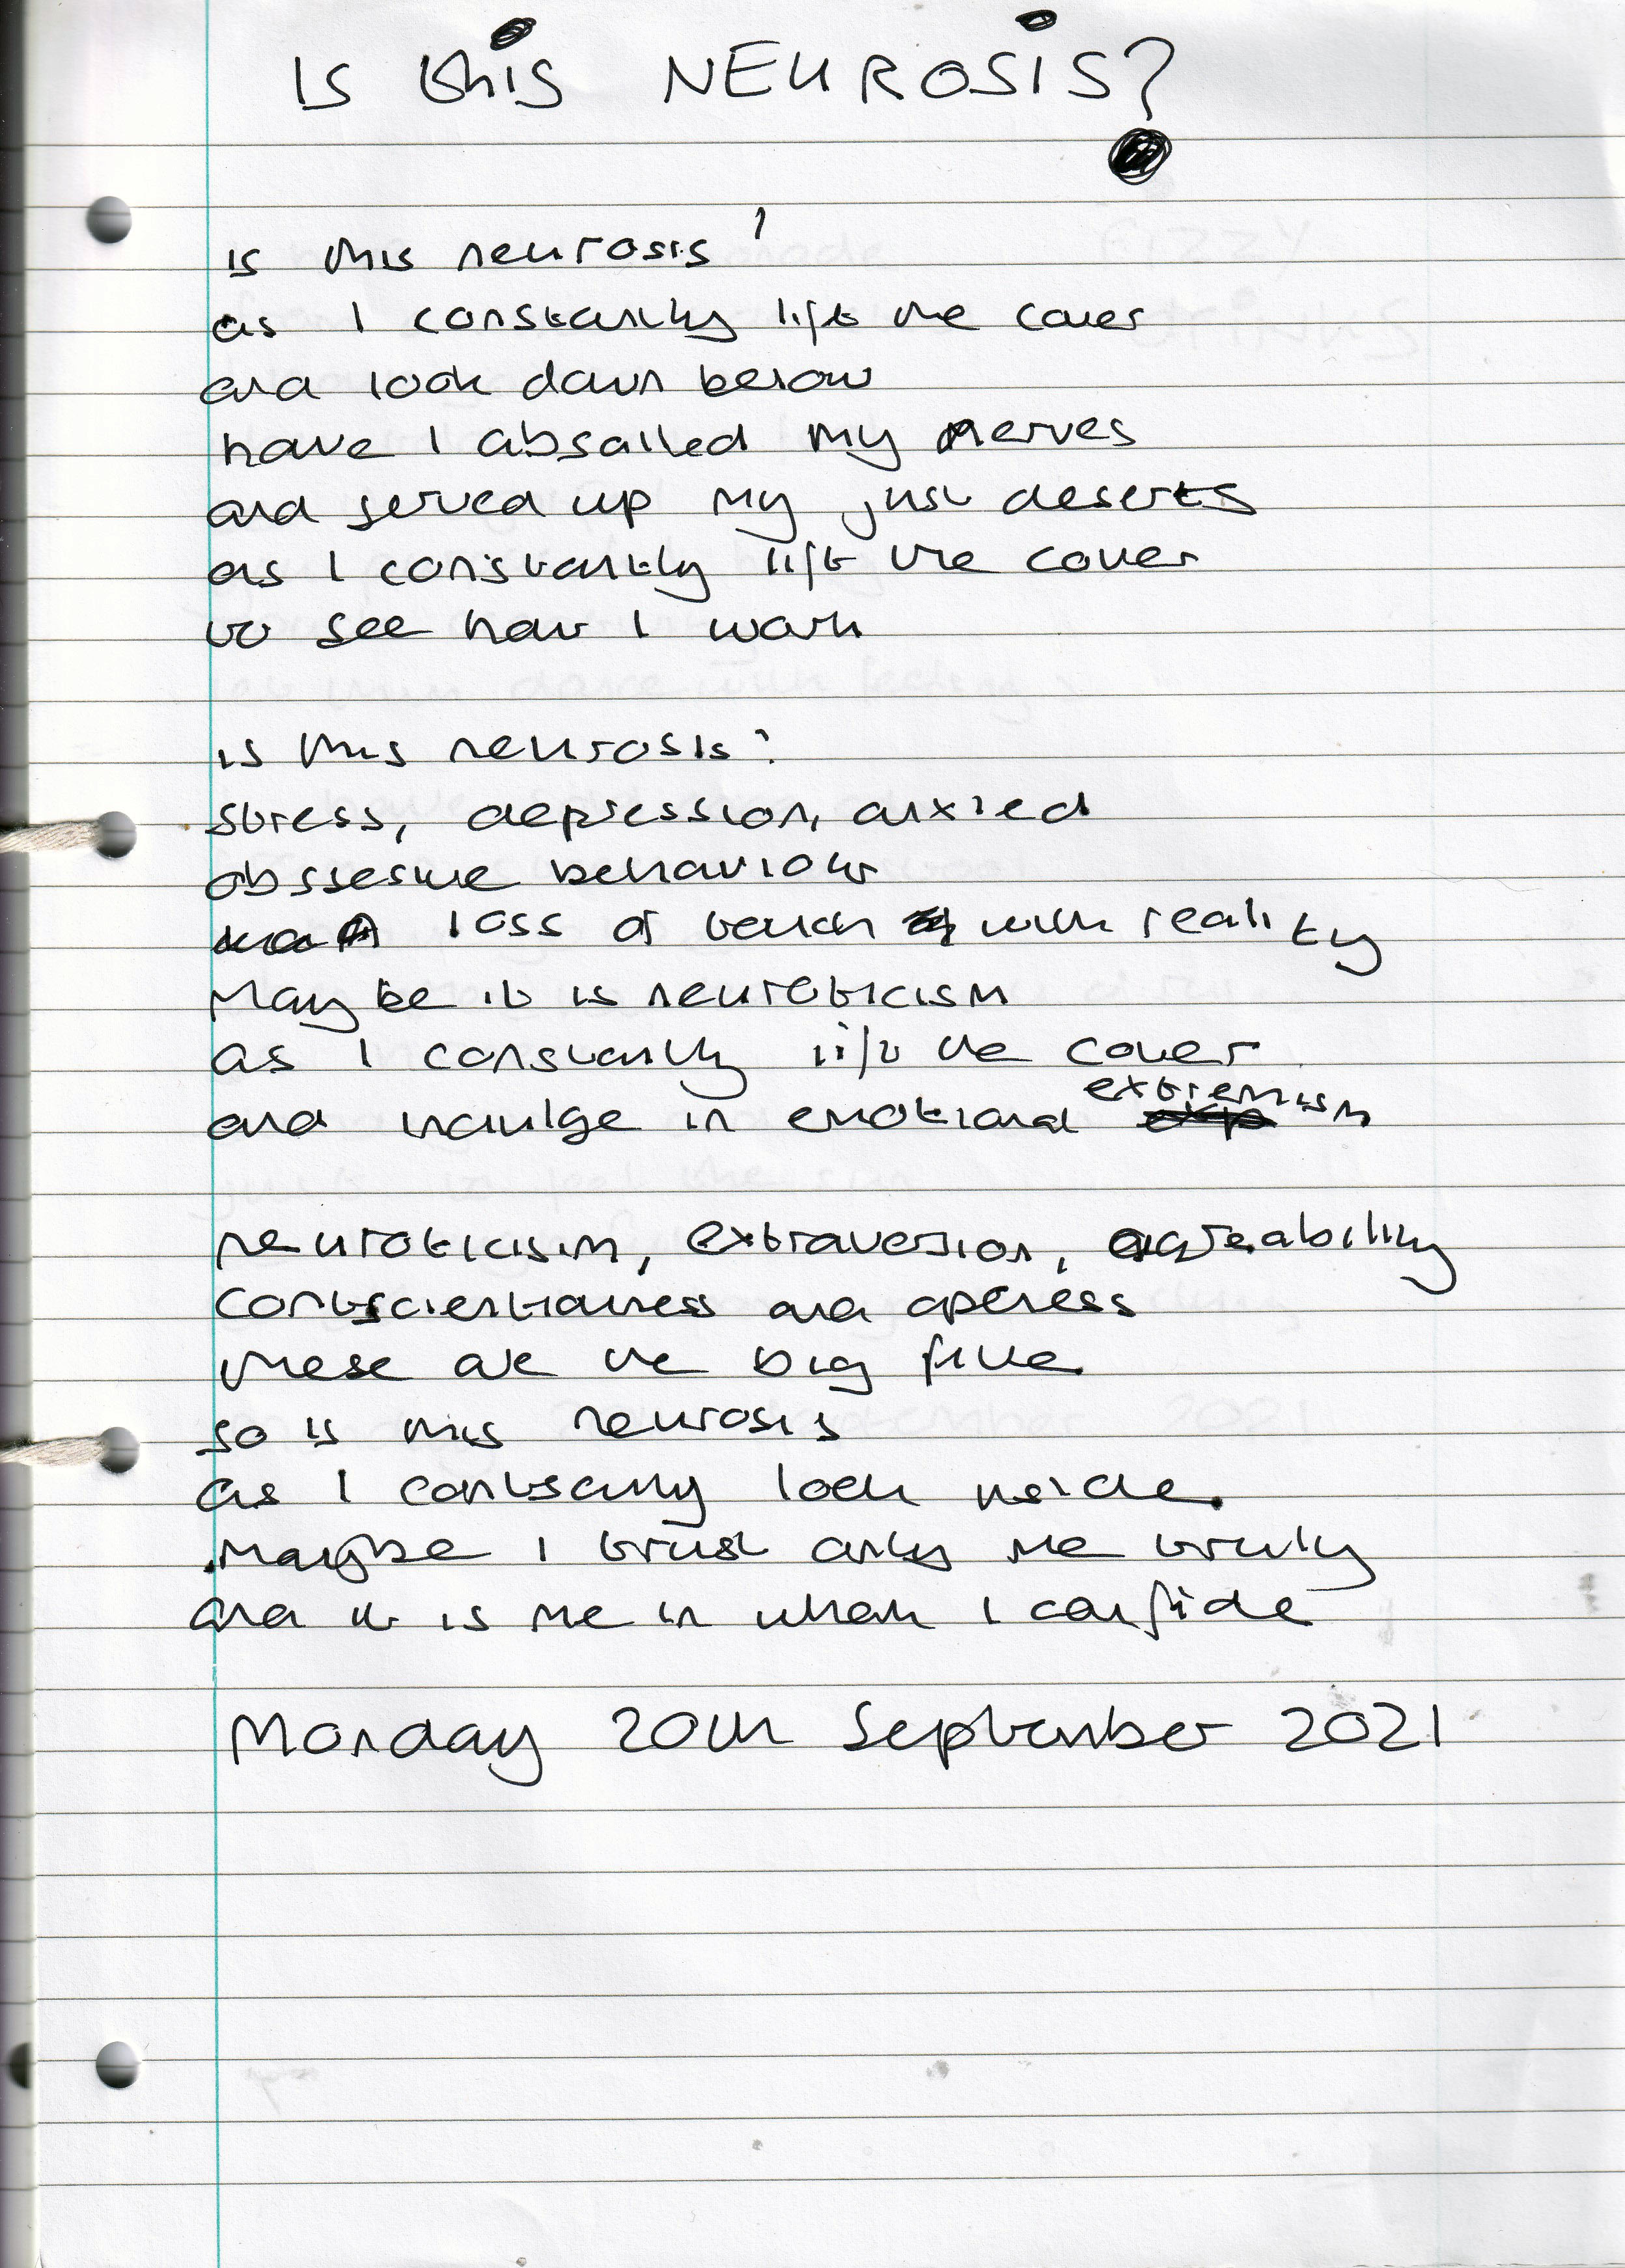 Is this NEUROSIS?
is this neurosis?
as I constantly lift the cover
and look down below
have I absailed my nerves
and served up my just deserts
as I constantly lift the cover
to see how I work
is this neurosis?
stress, depression, anxied
obssesive behaviour
A loss of touch with reality
Maybe it is neuroticism
as I constantly lift the cover
and indulge in emotional extremism
neuroticism, extraversion, agreability
contscientiouness and openess
these are the big five
so is this neurosis
as I contsantly look inside.
Maybe I trust only me truly
and it is me in whom I confide
Monday 20th September 2021